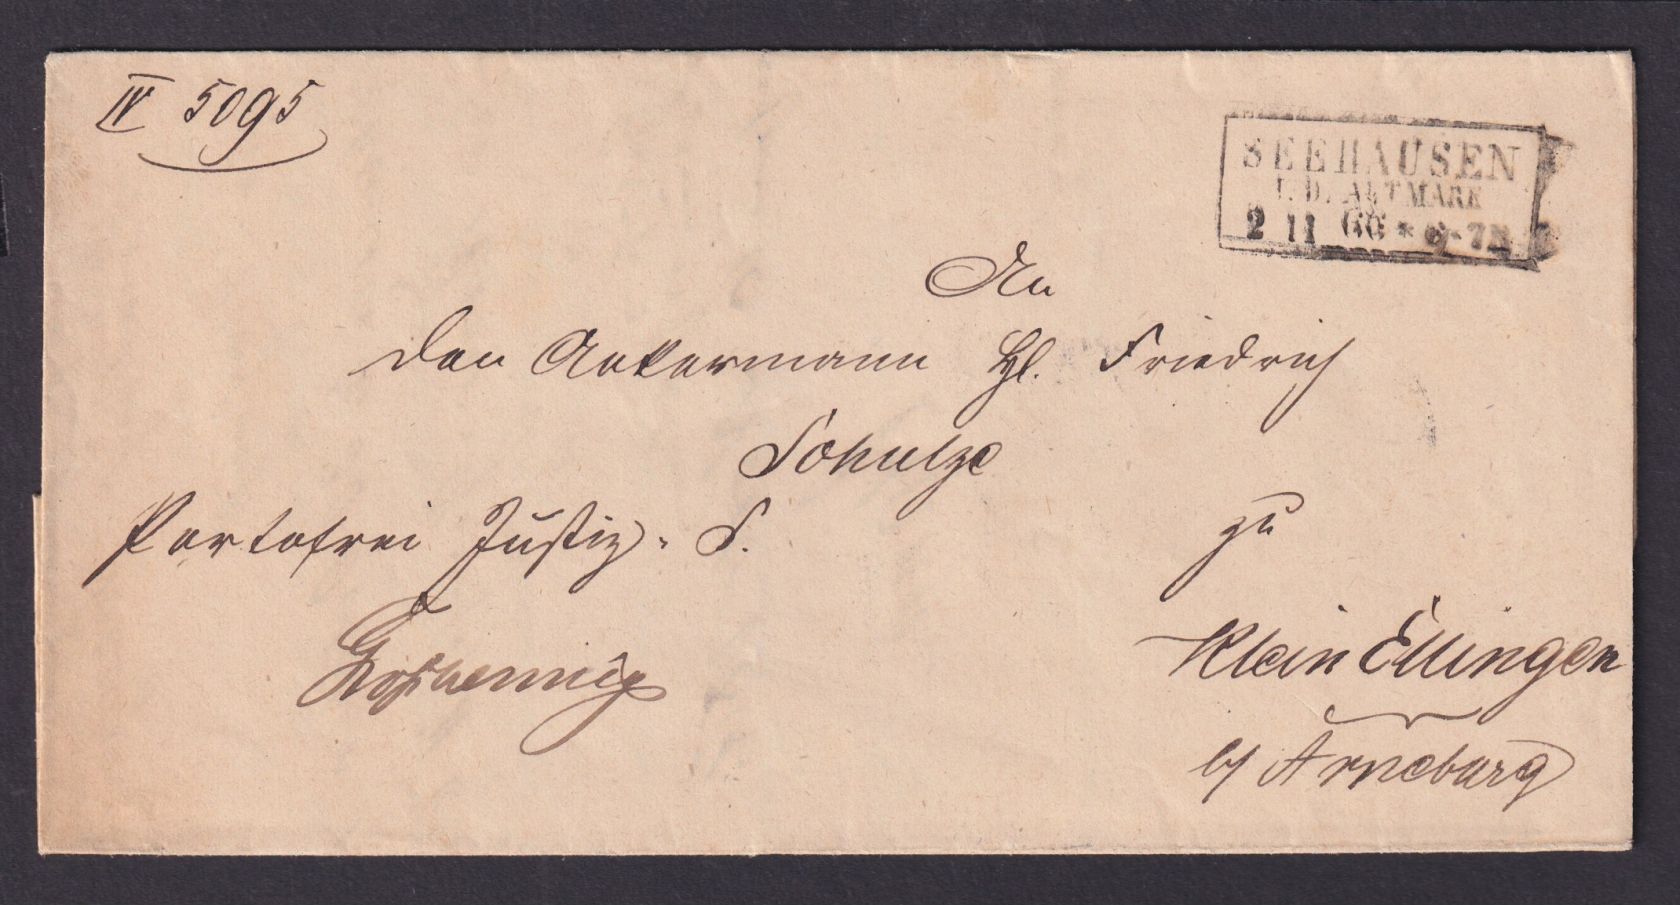 IV 5095
SEEHAUSEN
I. D. ALTMARK
2 11 66 * 6-7N
An
den Ackermann Hl. Friedrich
Schulze
Portofrei Justiz. S.
zu
Klein Ellingen
b/ Arneburg